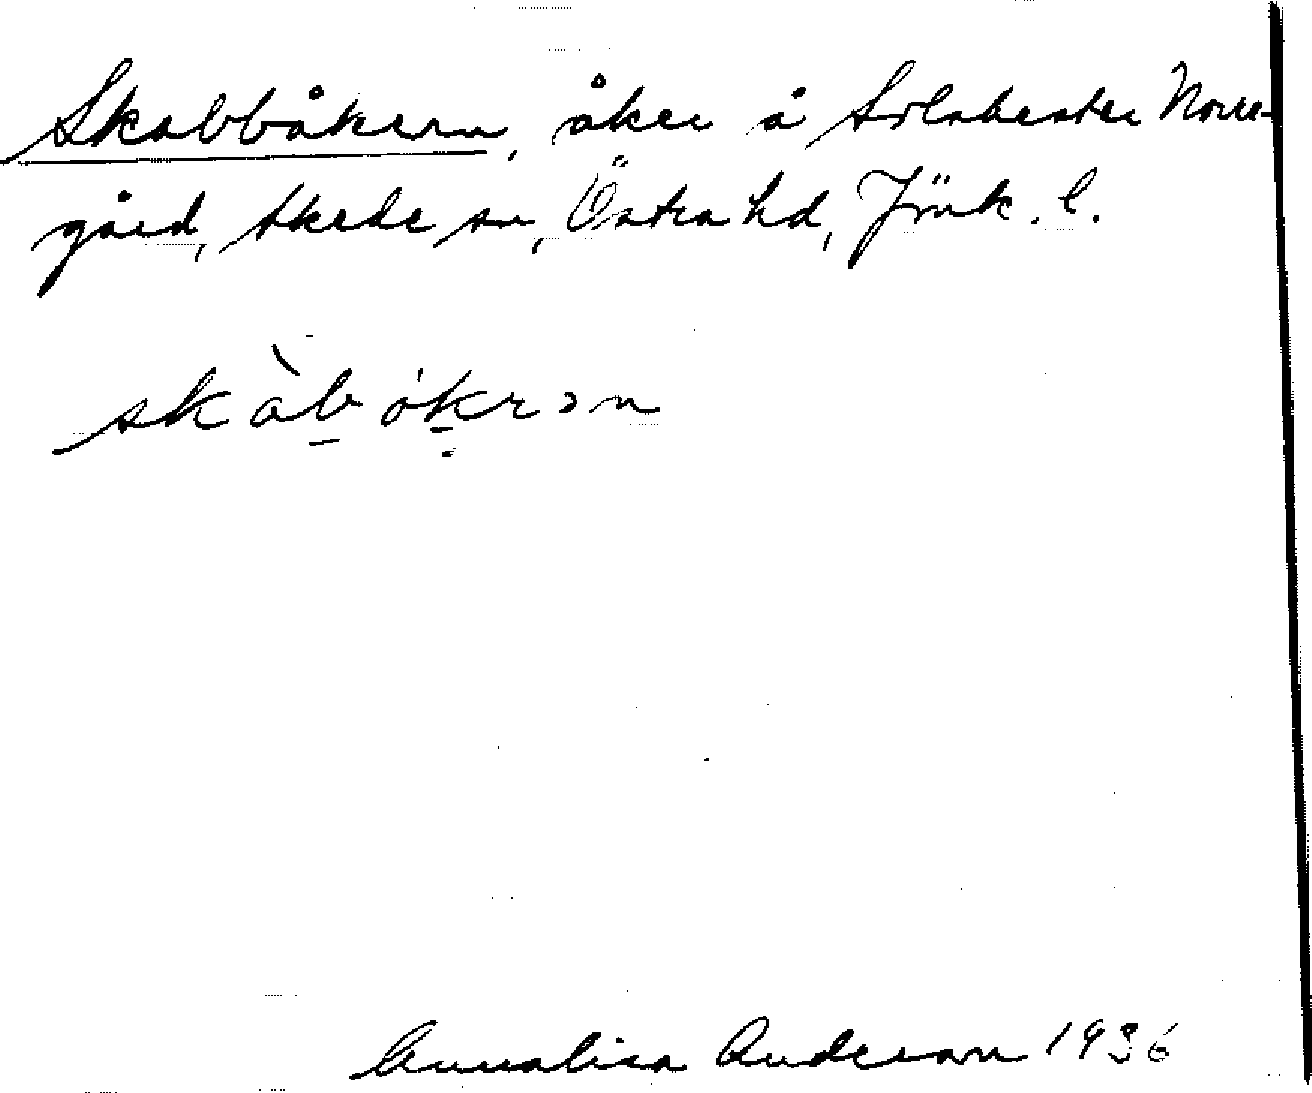 Skabbåkern, åker å Solaberke Norre-
gård, Skede sn, Östra hd, Jönk. l.
skàbókrɔn
Annalisa Anderson 1936